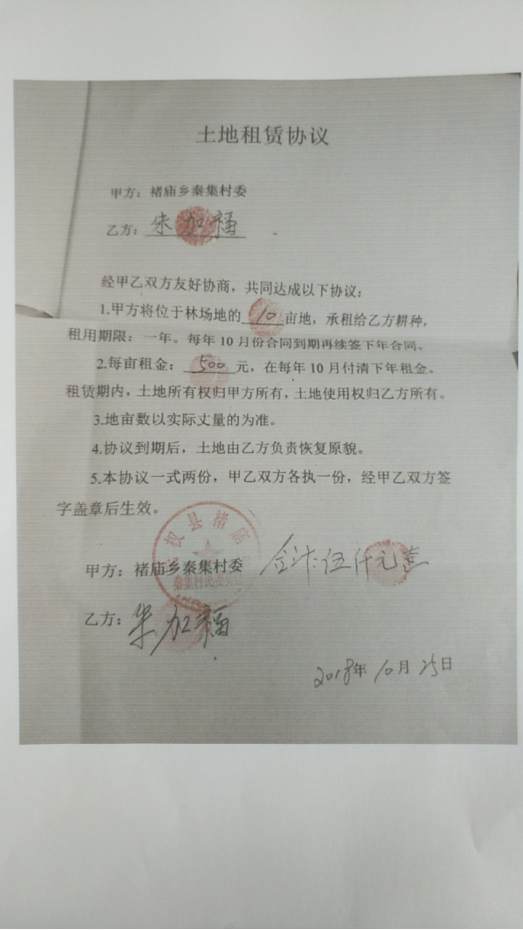 土地租赁协议
甲方：褚庙乡秦集村委
乙方：朱加福
经甲乙双方友好协商，共同达成以下协议：
1.甲方将位于林场地的10亩地，承租给乙方耕种，
租用期限：一年。每年10月份合同到期再续签下年合同。
2.每亩租金：500元，在每年10月付清下年租金。
租赁期内，土地所有权归甲方所有，土地使用权归乙方所有。
3.地亩数以实际丈量的为准。
4.协议到期后，土地由乙方负责恢复原貌。
5.本协议一式两份，甲乙双方各执一份，经甲乙双方签
字盖章后生效。
权县褚庙
甲方：褚庙乡秦集村委 合计伍仟元整
乙方：朱加福
2018年10月25日